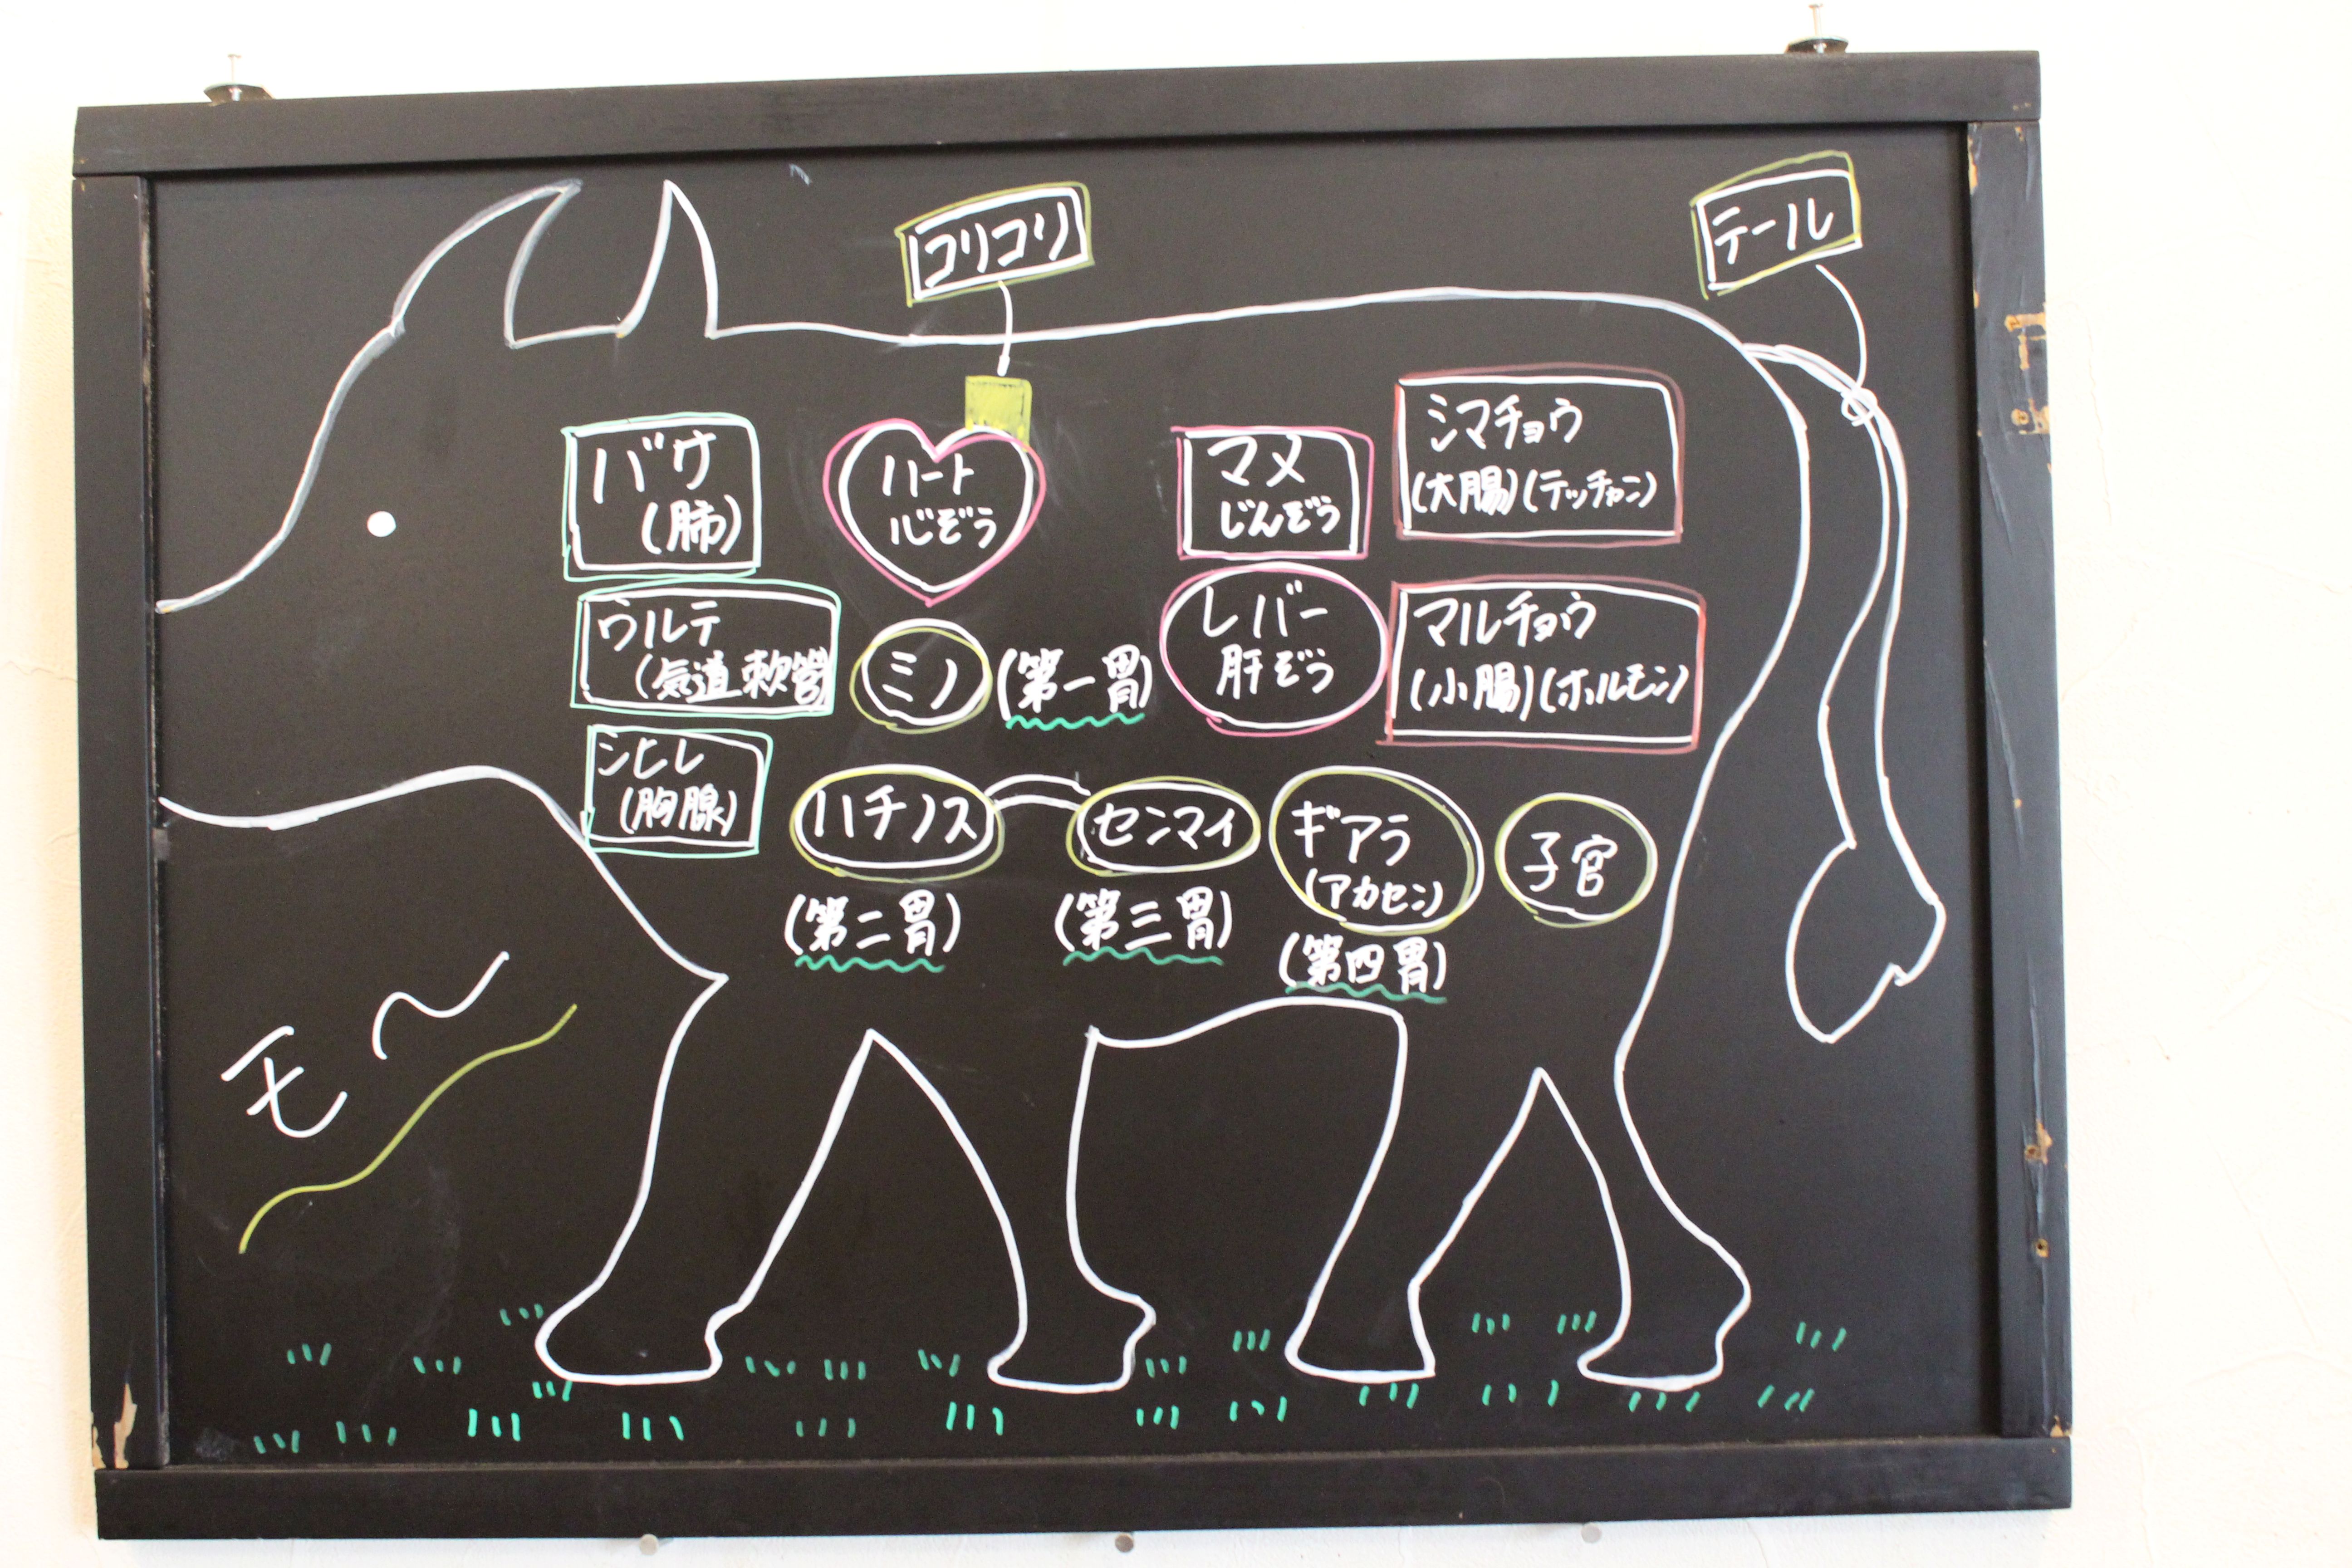 コリコリ
テール
バサ
(肺)
ハート
心ぞう
マメ
じんぞう
シマチョウ
(大腸)(テッチャン)
ウルテ
(気道軟管)
ミノ (第一胃)
レバー
肝ぞう
マルチョウ
(小腸)(ホルモン)
シビレ
(胸腺)
ハチノス
(第二胃)
センマイ
(第三胃)
ギアラ
(アカセン)
(第四胃)
子宮
モ〜